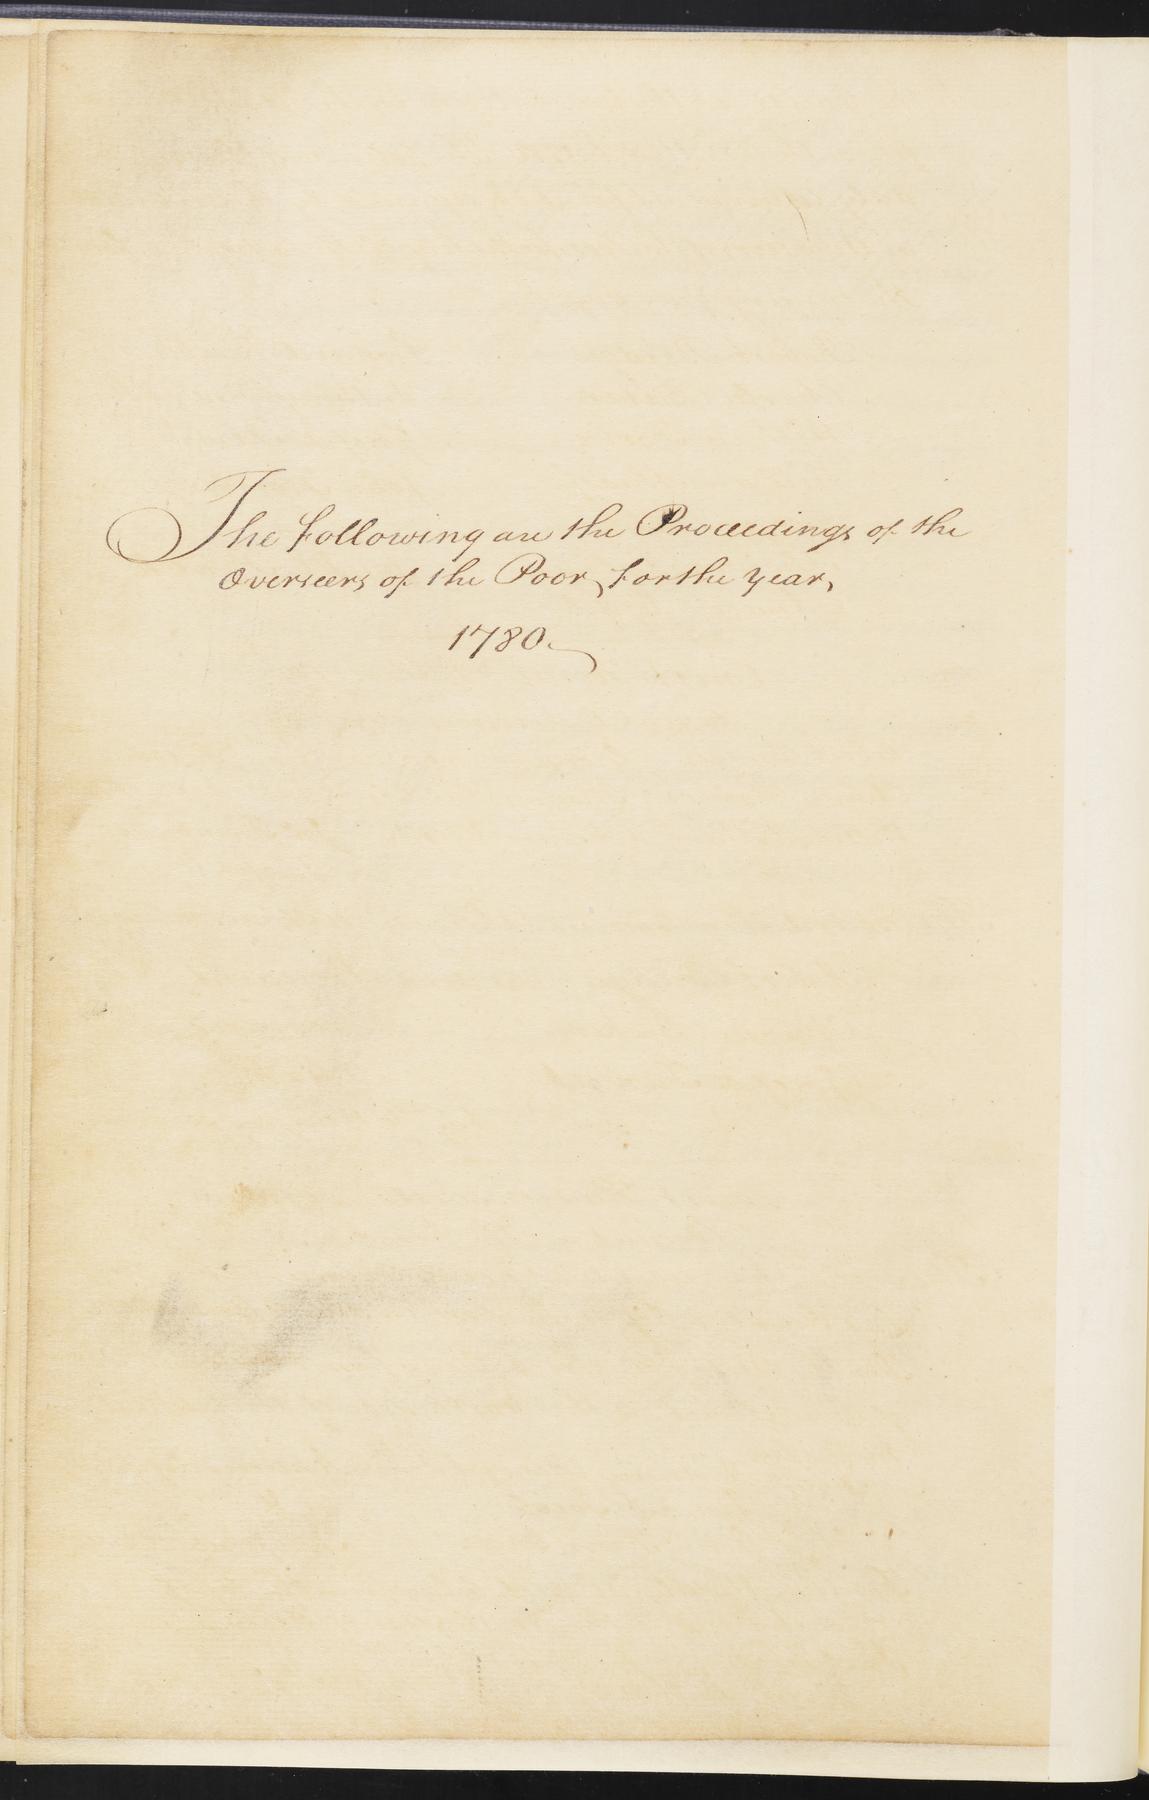 The following are the Proceedings of the
Overseers of the Poor, for the year,
1780.